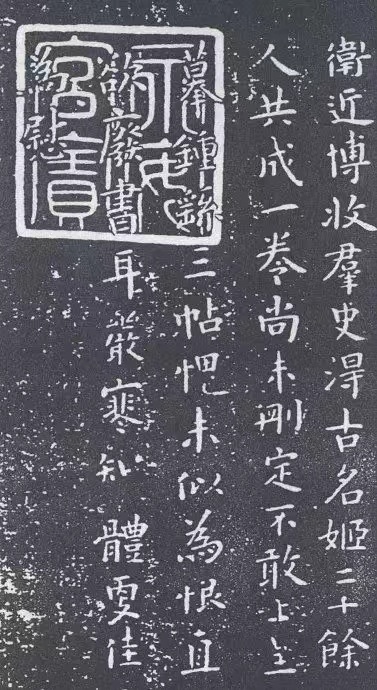 衛近博收羣史淂古名姬二十餘
人共成一卷尚未刪定不敢上呈
摹鍾繇三帖愧未似為恨直
欲廢書耳嚴寒知體更佳
為慰